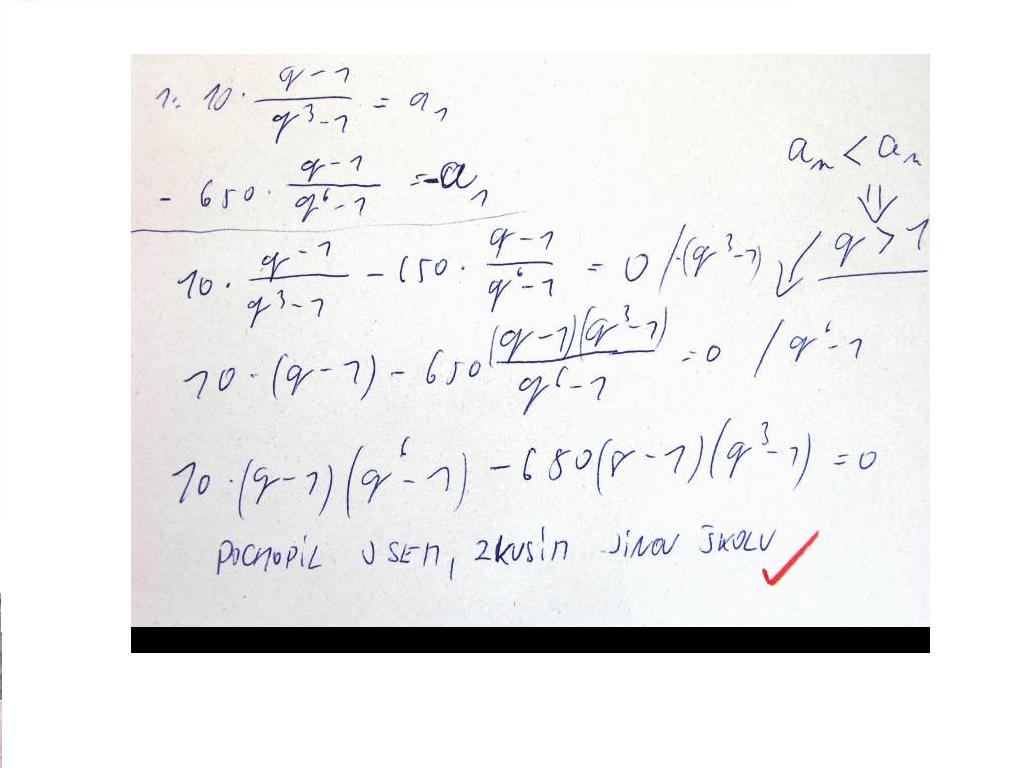 1. 10 · (q-1)/(q³-1) = a₁
- 650 · (q-1)/(q⁶-1) = -a₁
aₙ < aₙ
⇓
q > 1
10 · (q-1)/(q³-1) - 650 · (q-1)/(q⁶-1) = 0 / ·(q³-1)
10 · (q-1) - 650 (q-1)(q³-1)/(q⁶-1) = 0 / q⁶-1
10 · (q-1)(q⁶-1) - 680(q-1)(q³-1) = 0
POCHOPIL JSEM, ZKUSÍM JINOU ŠKOLU